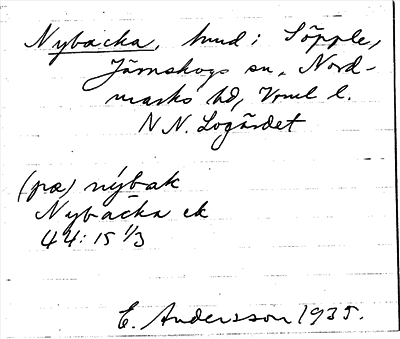 Nybacka, hmd i Söpple,
Järnskogs sn, Nord-
marks hd, Vrml l.
N N. Logårdet
(på) nýbak
Nybäcka ek
44: 15 1/3
E. Andersson 1935.